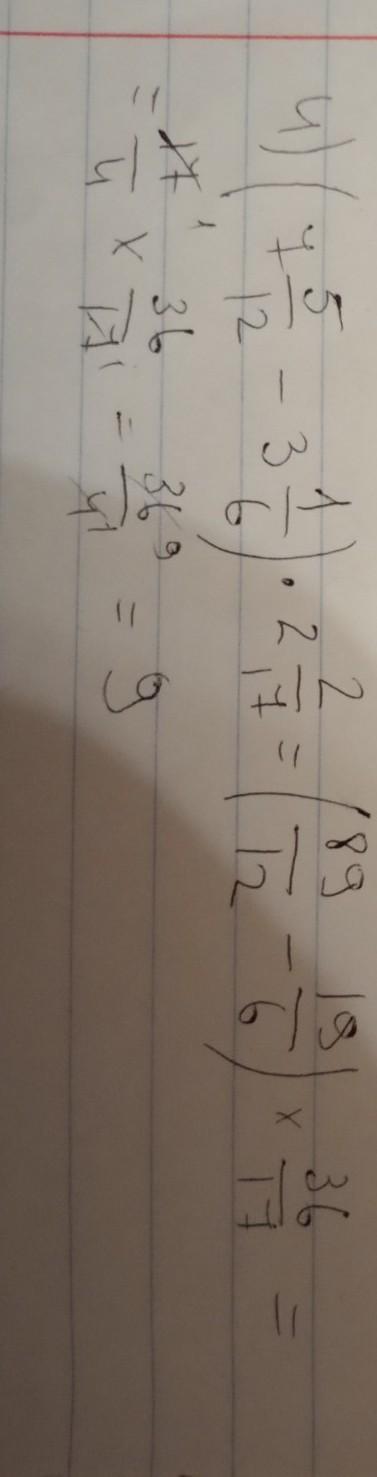 4) (7 5/12 - 3 1/6) · 2 2/17 = (89/12 - 19/6) × 36/17 =
= 17¹/4 × 36/17¹ = 36⁹/4¹ = 9